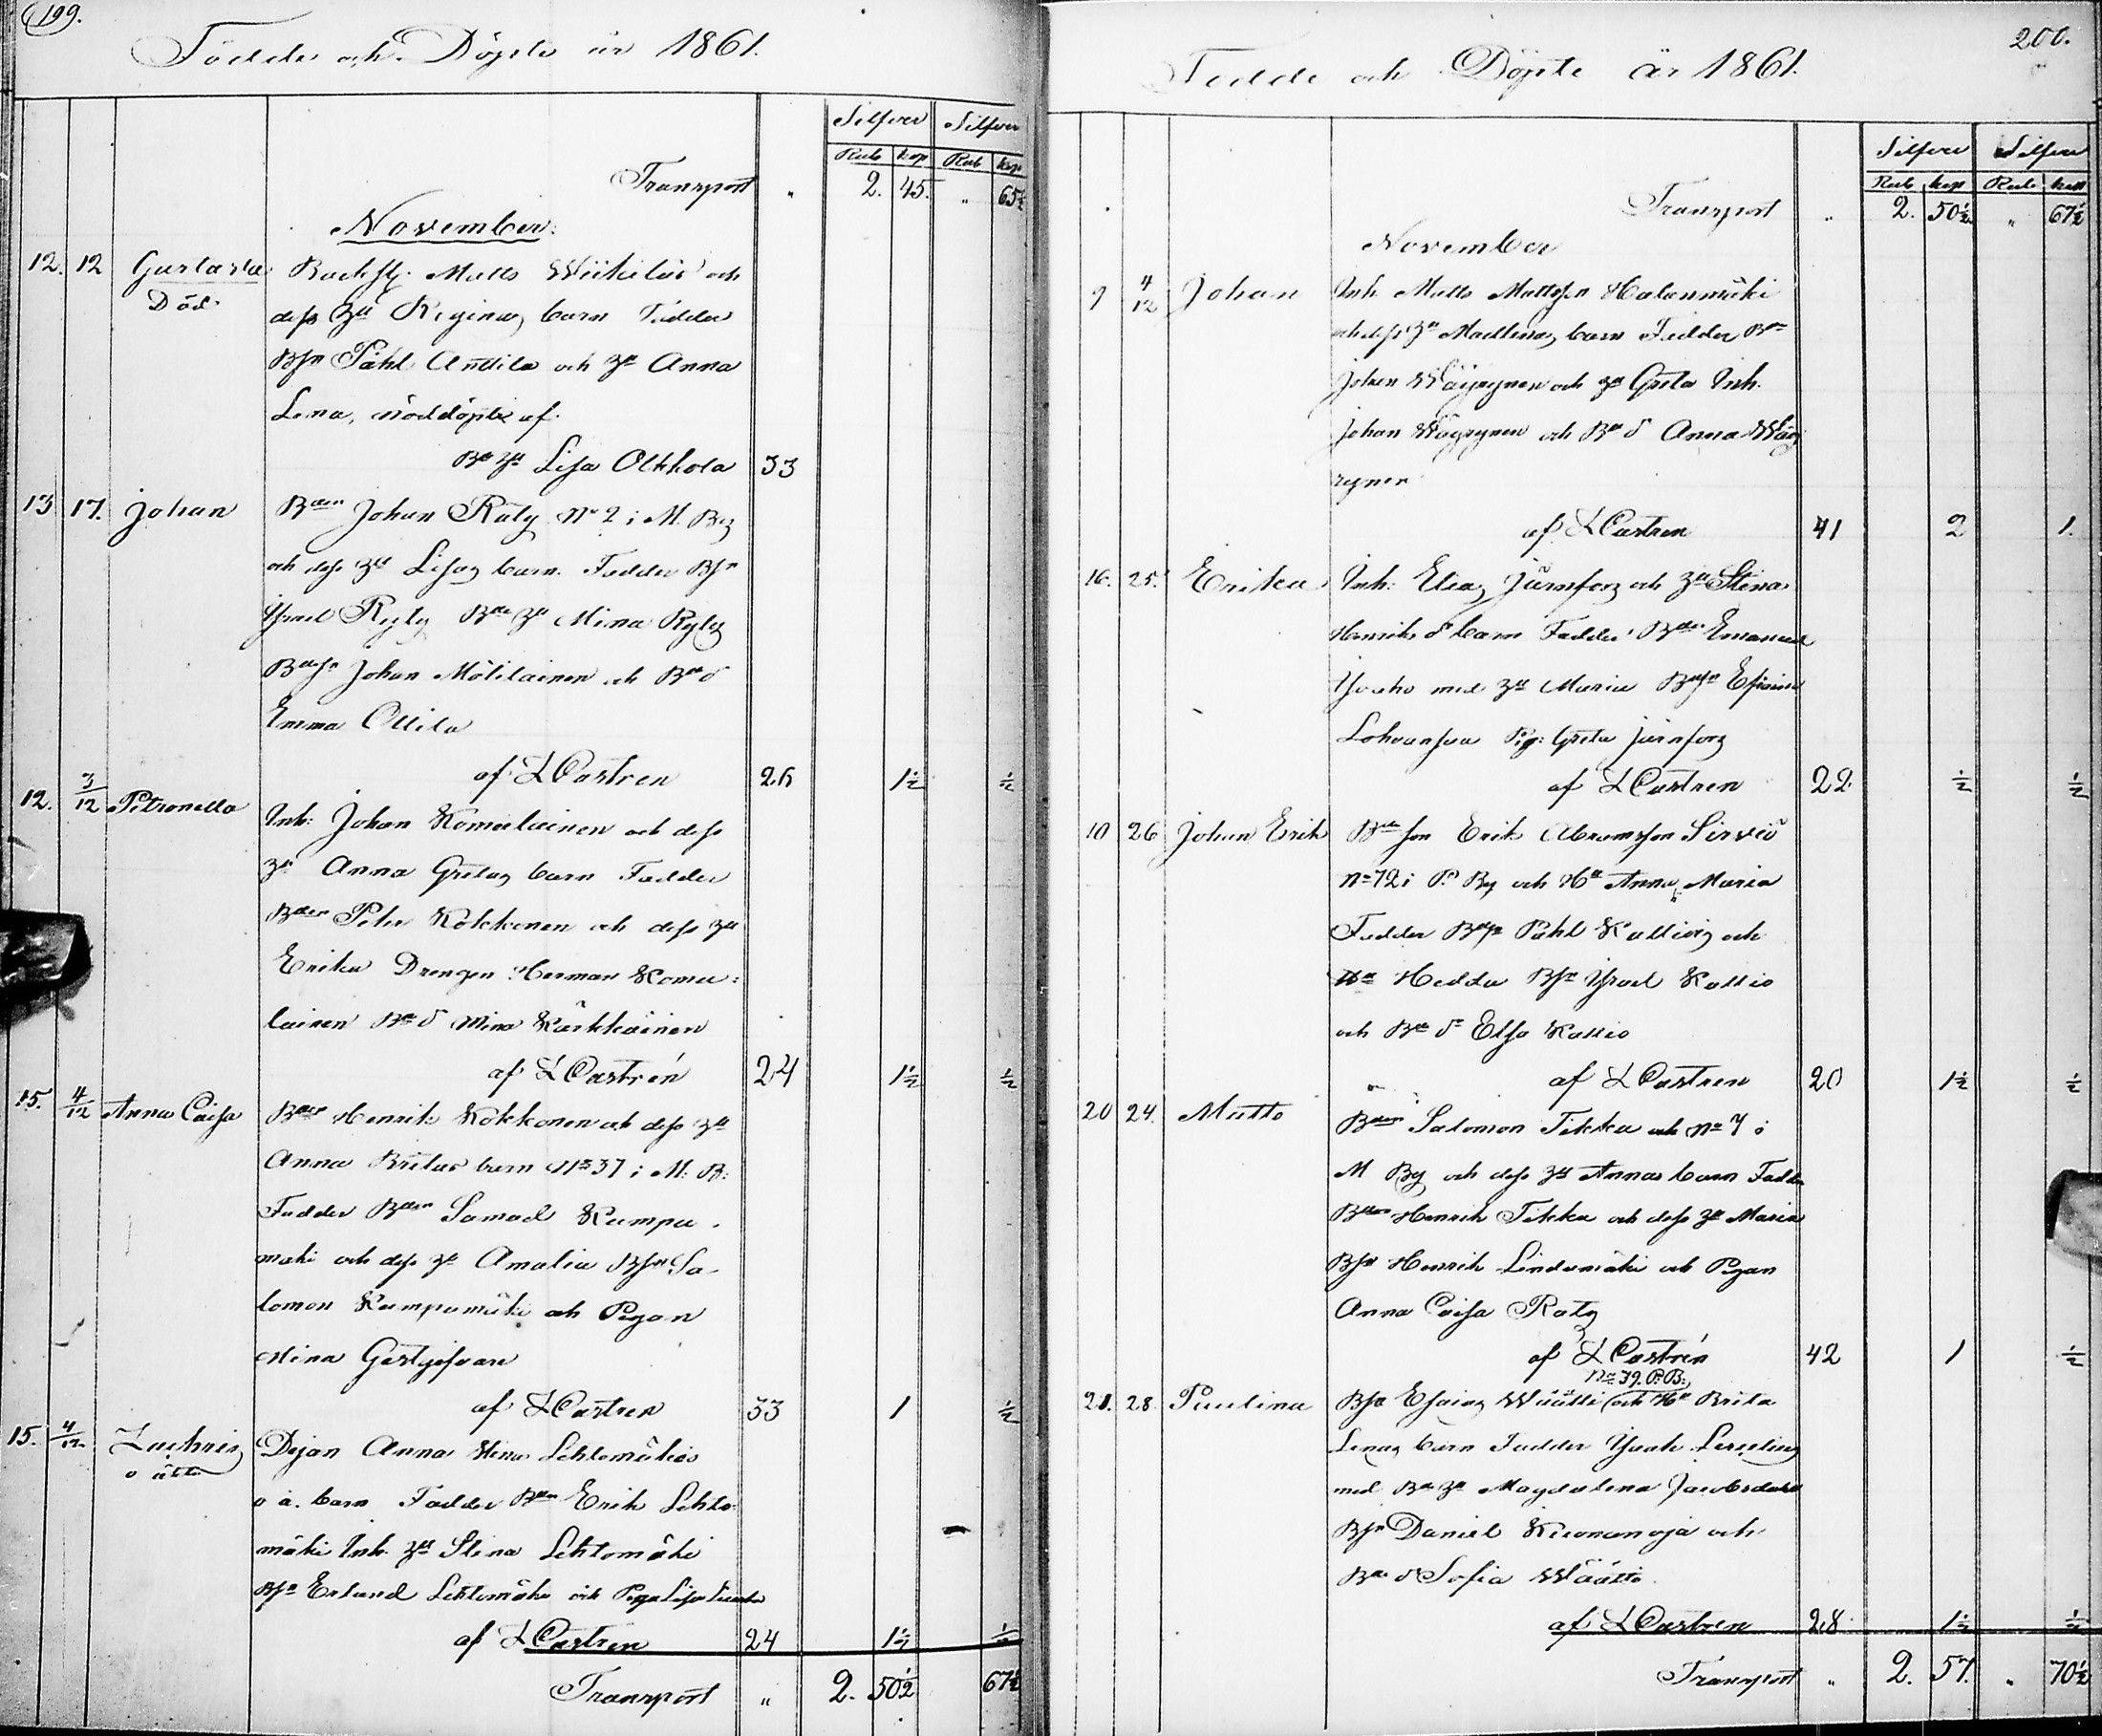 199.
Födde och Döpte år 1861.
Silfver Silfver
Rub kop Rub kop
Transport " 2. 45. " 65½
November.
12. 12 Gustava Backst. Matts Wiikilä och
Död. dess Hu Reginas barn Faddr
Bsn Påhl Anttila och Hu Anna
Lena, nöddöpt af
Bde Hu Lisa Olkkola 33
13 17. Johan Bden Johan Räty No 2 i M. By
och dess Hu Lisas barn. Faddr Bsn
Israel Ryty Bde Hu Mina Ryty
Bdesn Johan Mölilainen och Bde d
Emma Ollila
af L Castren 26 1½ ½
12. 3/12 Petronella Inh: Johan Komulainen och dess
Hu Anna Gretas barn Faddr
Bden Peter Kokkonen och dess Hu
Erika Drengen Herman Komu=
lainen Bde d Mina Kärkkäinen
af L Castrén 24 1½ ½
15. 4/12 Anna Caisa Bden Henrik Kokkonen och dess Hu
Anna Britas barn No 37 i M. B:
Faddr Bden Samuel Kumpu-
mäki och dess Hu Amalia Bsn Sa-
lomon Kumpumäki och Pigan
Stina Gästgifvare
af L Castren 33 1 ½
15. 4/12 Zachris Pigan Anna Stina Lehtomäkis
o ätta o ä. barn Faddr Bden Erik Lehto-
mäki Inh. Hu Stina Lehtomäki
Bsn Erland Lehtomäki och Piga Lisa
af L Castren 24 1½ ½
Transport " 2. 50½ 67½
200.
Födde och Döpte år 1861.
Silfver Silfver
Rub kop Rub kop
Transport " 2. 50½ " 67½
November
9 4/12 Johan Inh Matts Mattsson Halanmäki
och dess Hu Madlenas barn Faddr Bde
Johan Wäyrynen och Hu Greta Inh.
Johan Wäyrynen och Bde d Anna Wäy
rynen
af L Castren 41 2 1.
16. 25. Erika Inh: Elias Järnfors och Hu Stina
Henriks d barn Faddr Bden Emanuel
Ysaho med Hu Maria Bdesn Esaias
Lohvansuu Pig: Greta Järnfors
af L Castren 22 ½ ½
10 26 Johan Erik Bde son Erik Abramsson Sirviö
No 72 i P. By och Hu Anna Maria
Faddr Bdesn Påhl Kallios och
Hu Hedda Bsn Israel Kallio
och Bde dr Elsa Kallio
af L Castren 20 1½ ½
20 24. Matts Bden Salomon Tikka No 7 i
M By och dess Hu Annas barn Faddr
Bden Henrik Tikka och dess Hu Maria
Bsn Henrik Lindumäki och Pigan
Anna Caisa Räty
af L Castrén 42 1 ½
No 39. P. B:
21. 28. Paulina Bsn Esaias Wäätti och Hu Brita
Lenas barn Faddr Isak
med Bde Hu Magdalena Jacobsdotter
Bsn Daniel Kuvanoja och
Bde d Sofia Wäätti
af L Castren 28 1½ ½
Transport " 2. 57. " 70½